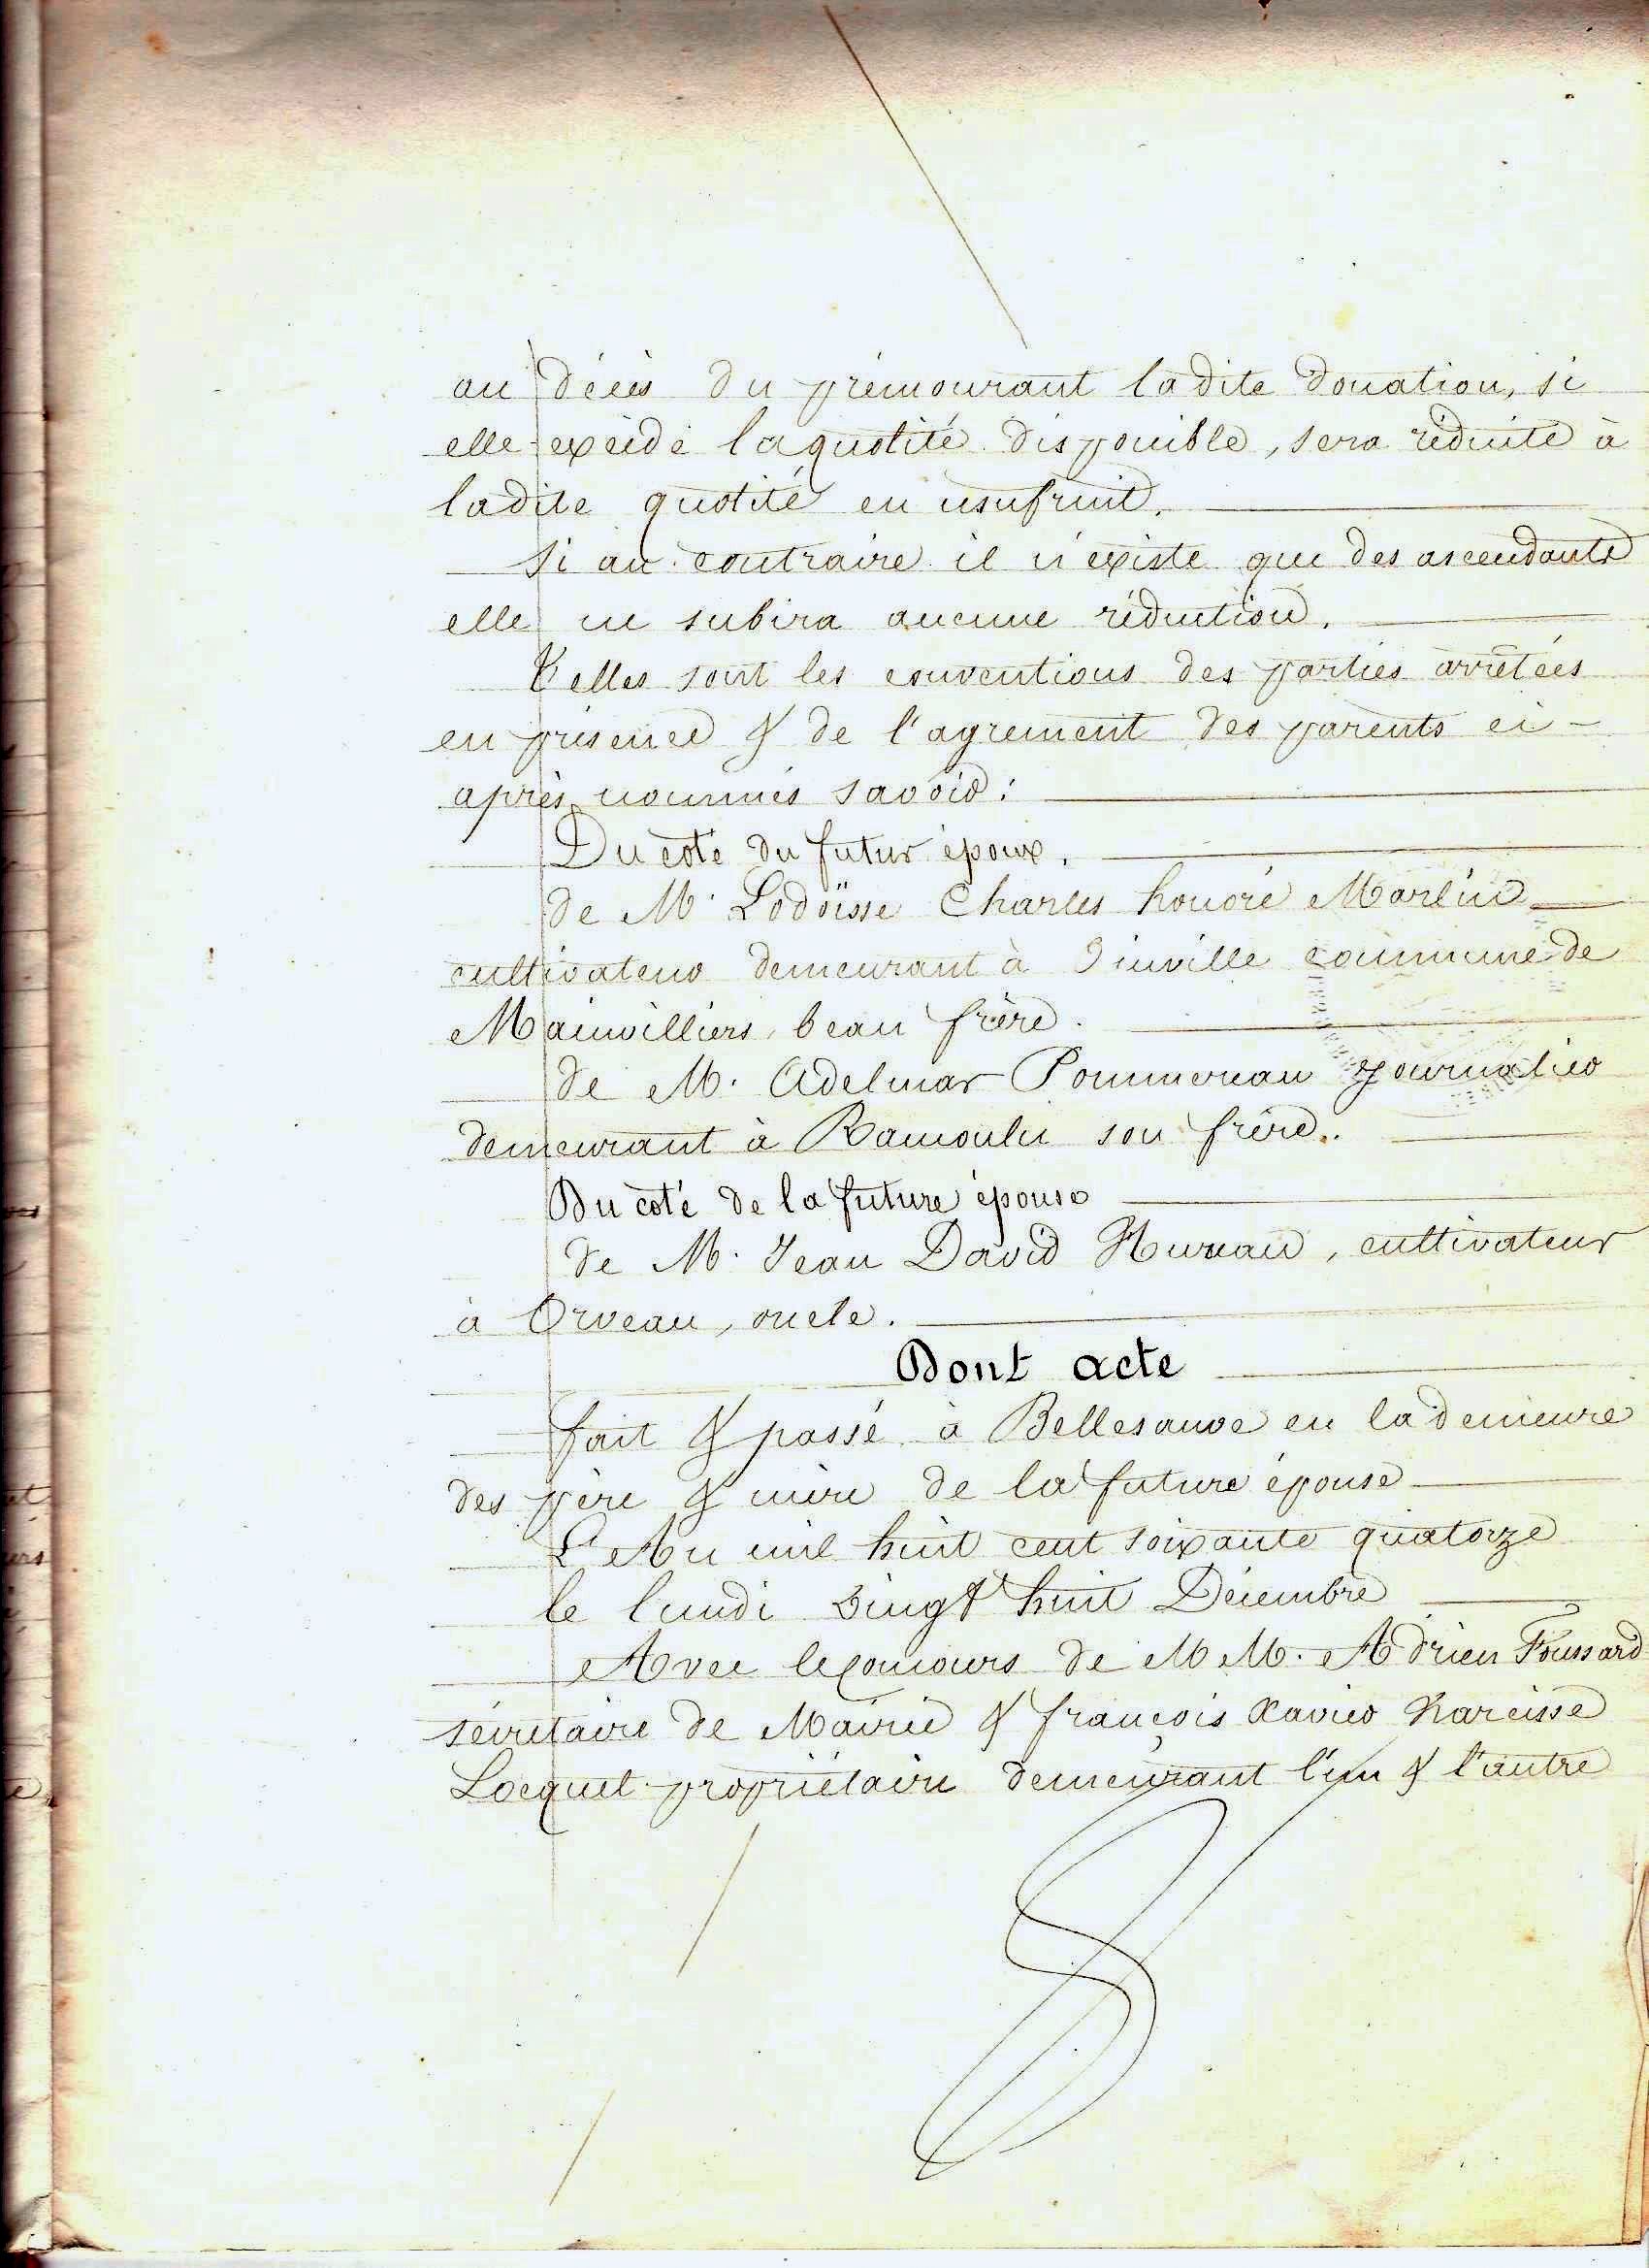 au décès du prémourant ladite donation, si
elle excède la quotité disponible, sera réduite à
ladite quotité en usufruit.
Si au contraire il n'existe que des ascendants
elle ne subira aucune réduction.
Telles sont les conventions des parties arrêtées
en présence & de l'agrement des parents ci-
après nommés savoir :
Du coté du futur époux.
de M. Lodoïsse Charles honoré Marlin
cultivateur demeurant à Jinville commune de
Mainvilliers, beau frère.
de M. Adelmar Pommereau journalier
demeurant à Ramoulu son frère.
Du coté de la future épouse
de M. Jean David Hureau, cultivateur
à Orveau, oncle.
Dont acte
fait & passé à Bellesauve en la demeure
des père & mère de la future épouse
L'An mil huit cent soixante quatorze
le lundi vingt huit Décembre
Avec le concours de M M. Adrien Foussard
sécretaire de Mairie & françois Xavier Narcisse
Locquet propriétaire demeurant l'un & l'autre